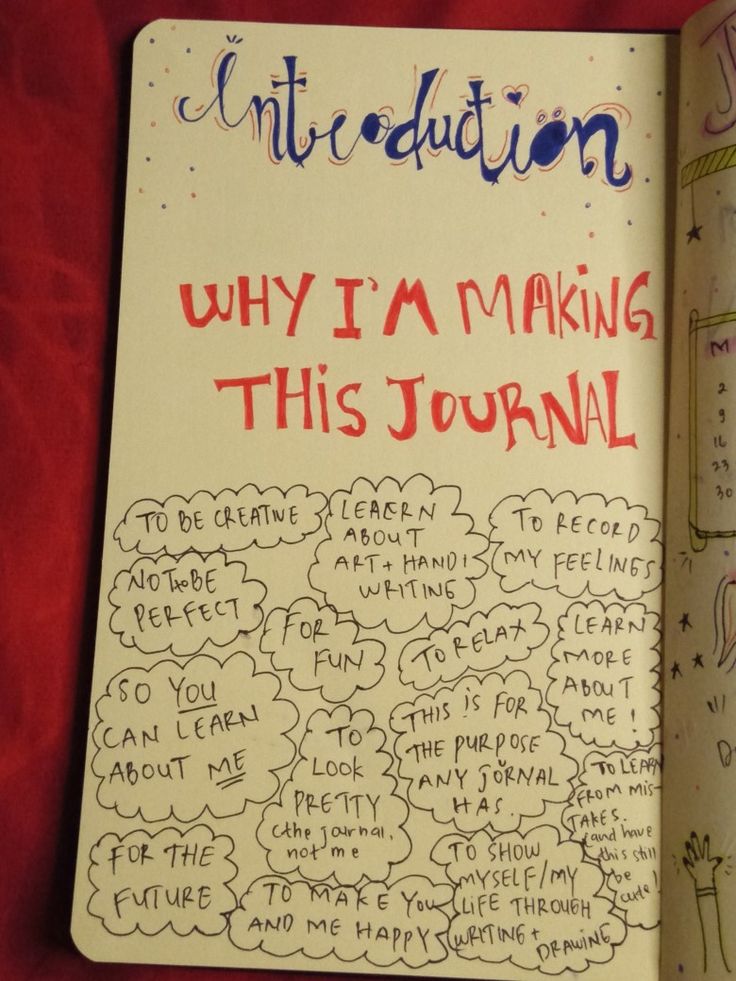 Introduction
WHY I'M MAKING
THIS JOURNAL
TO BE CREATIVE
LEAERN
ABOUT
ART + HAND
WRITING
TO RECORD
MY FEELINGS
NOT to BE
PERFECT
FOR
FUN
TO RELAX
LEARN
MORE
ABOUT
ME!
SO YOU
CAN LEARN
ABOUT ME
TO
LOOK
PRETTY
(the journal,
not me
THIS IS FOR
THE PURPOSE
ANY JORNAL
HAS.
TO LEARN
FROM MIS-
TAKES.
(and have
this still
be
cute!
FOR THE
FUTURE
TO MAKE YOU
AND ME HAPPY
TO SHOW
MYSELF/MY
LIFE THROUGH
WRITING +
DRAWING
M
2
9
16
23
30